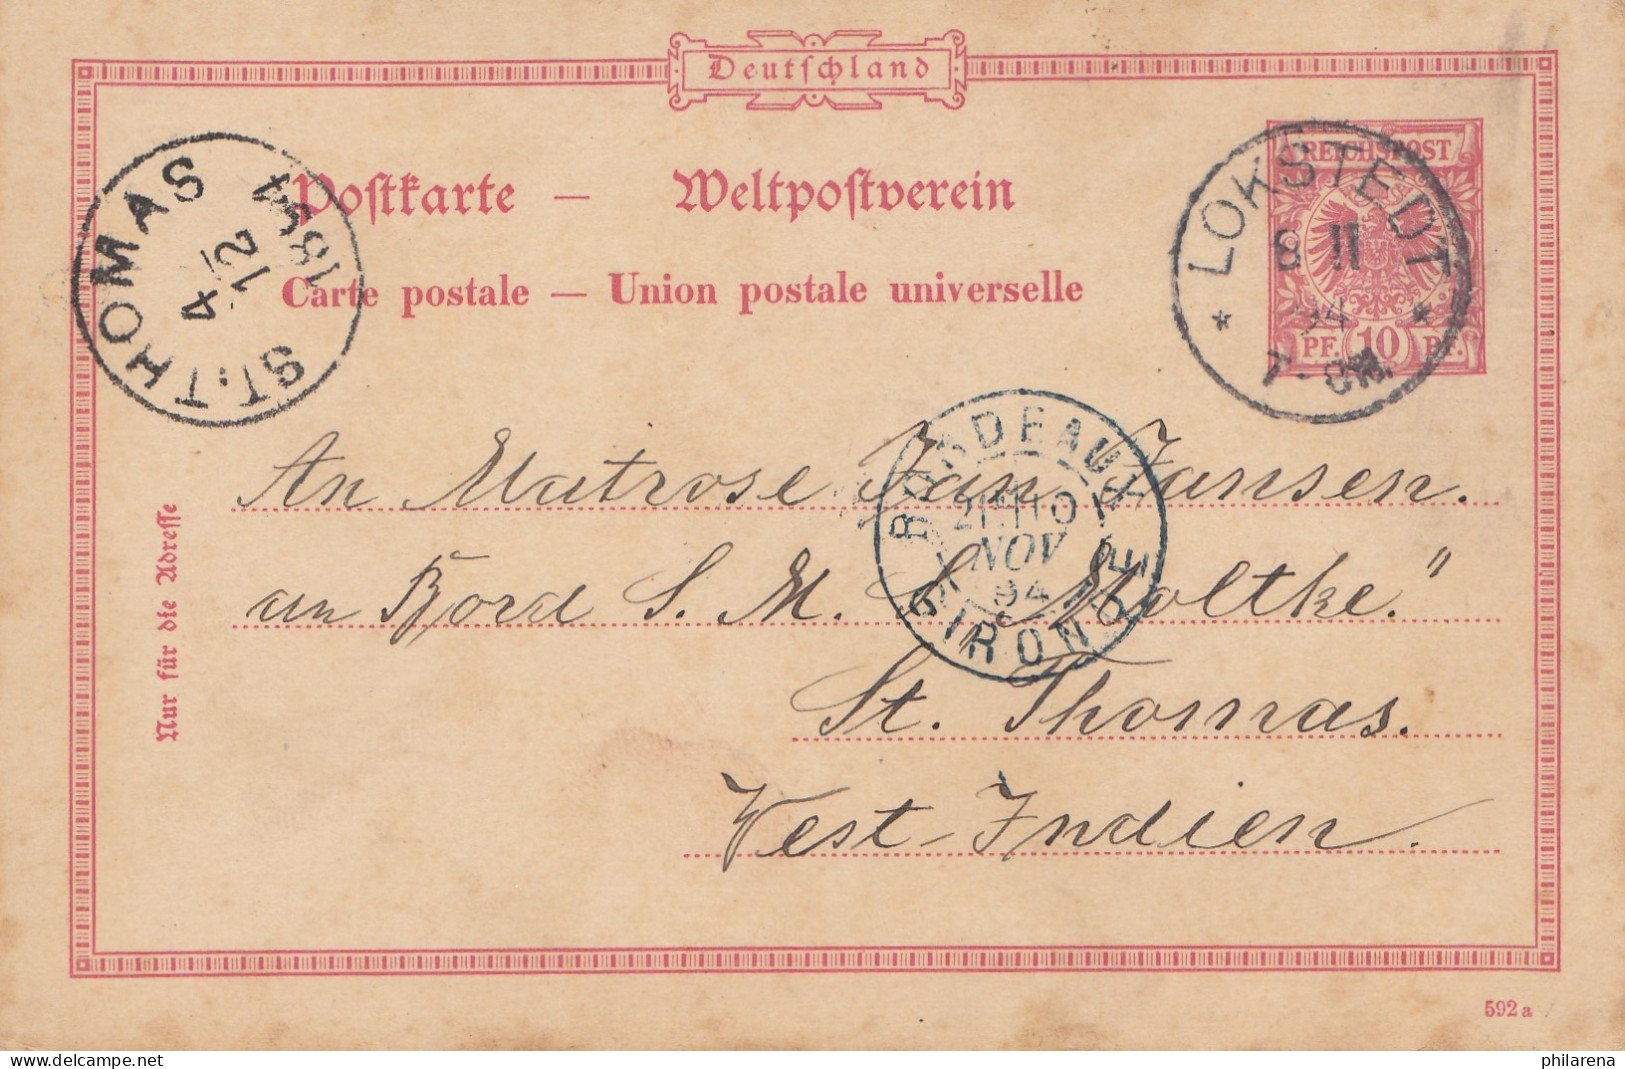 Deutschland
Postkarte — Weltpostverein
Carte postale — Union postale universelle
REICHSPOST
PF. 10 PF.
* LOKSTEDT *
8 11
94
7-8N.
ST. THOMAS
4/12
1894
BORDEAUX
NOV
94
GIRONDE
An Matrose Jan Jansen.
an Bord S. M. S. Moltke."
St. Thomas.
West-Indien.
Nur für die Adresse
592a
philarena.com
philarena